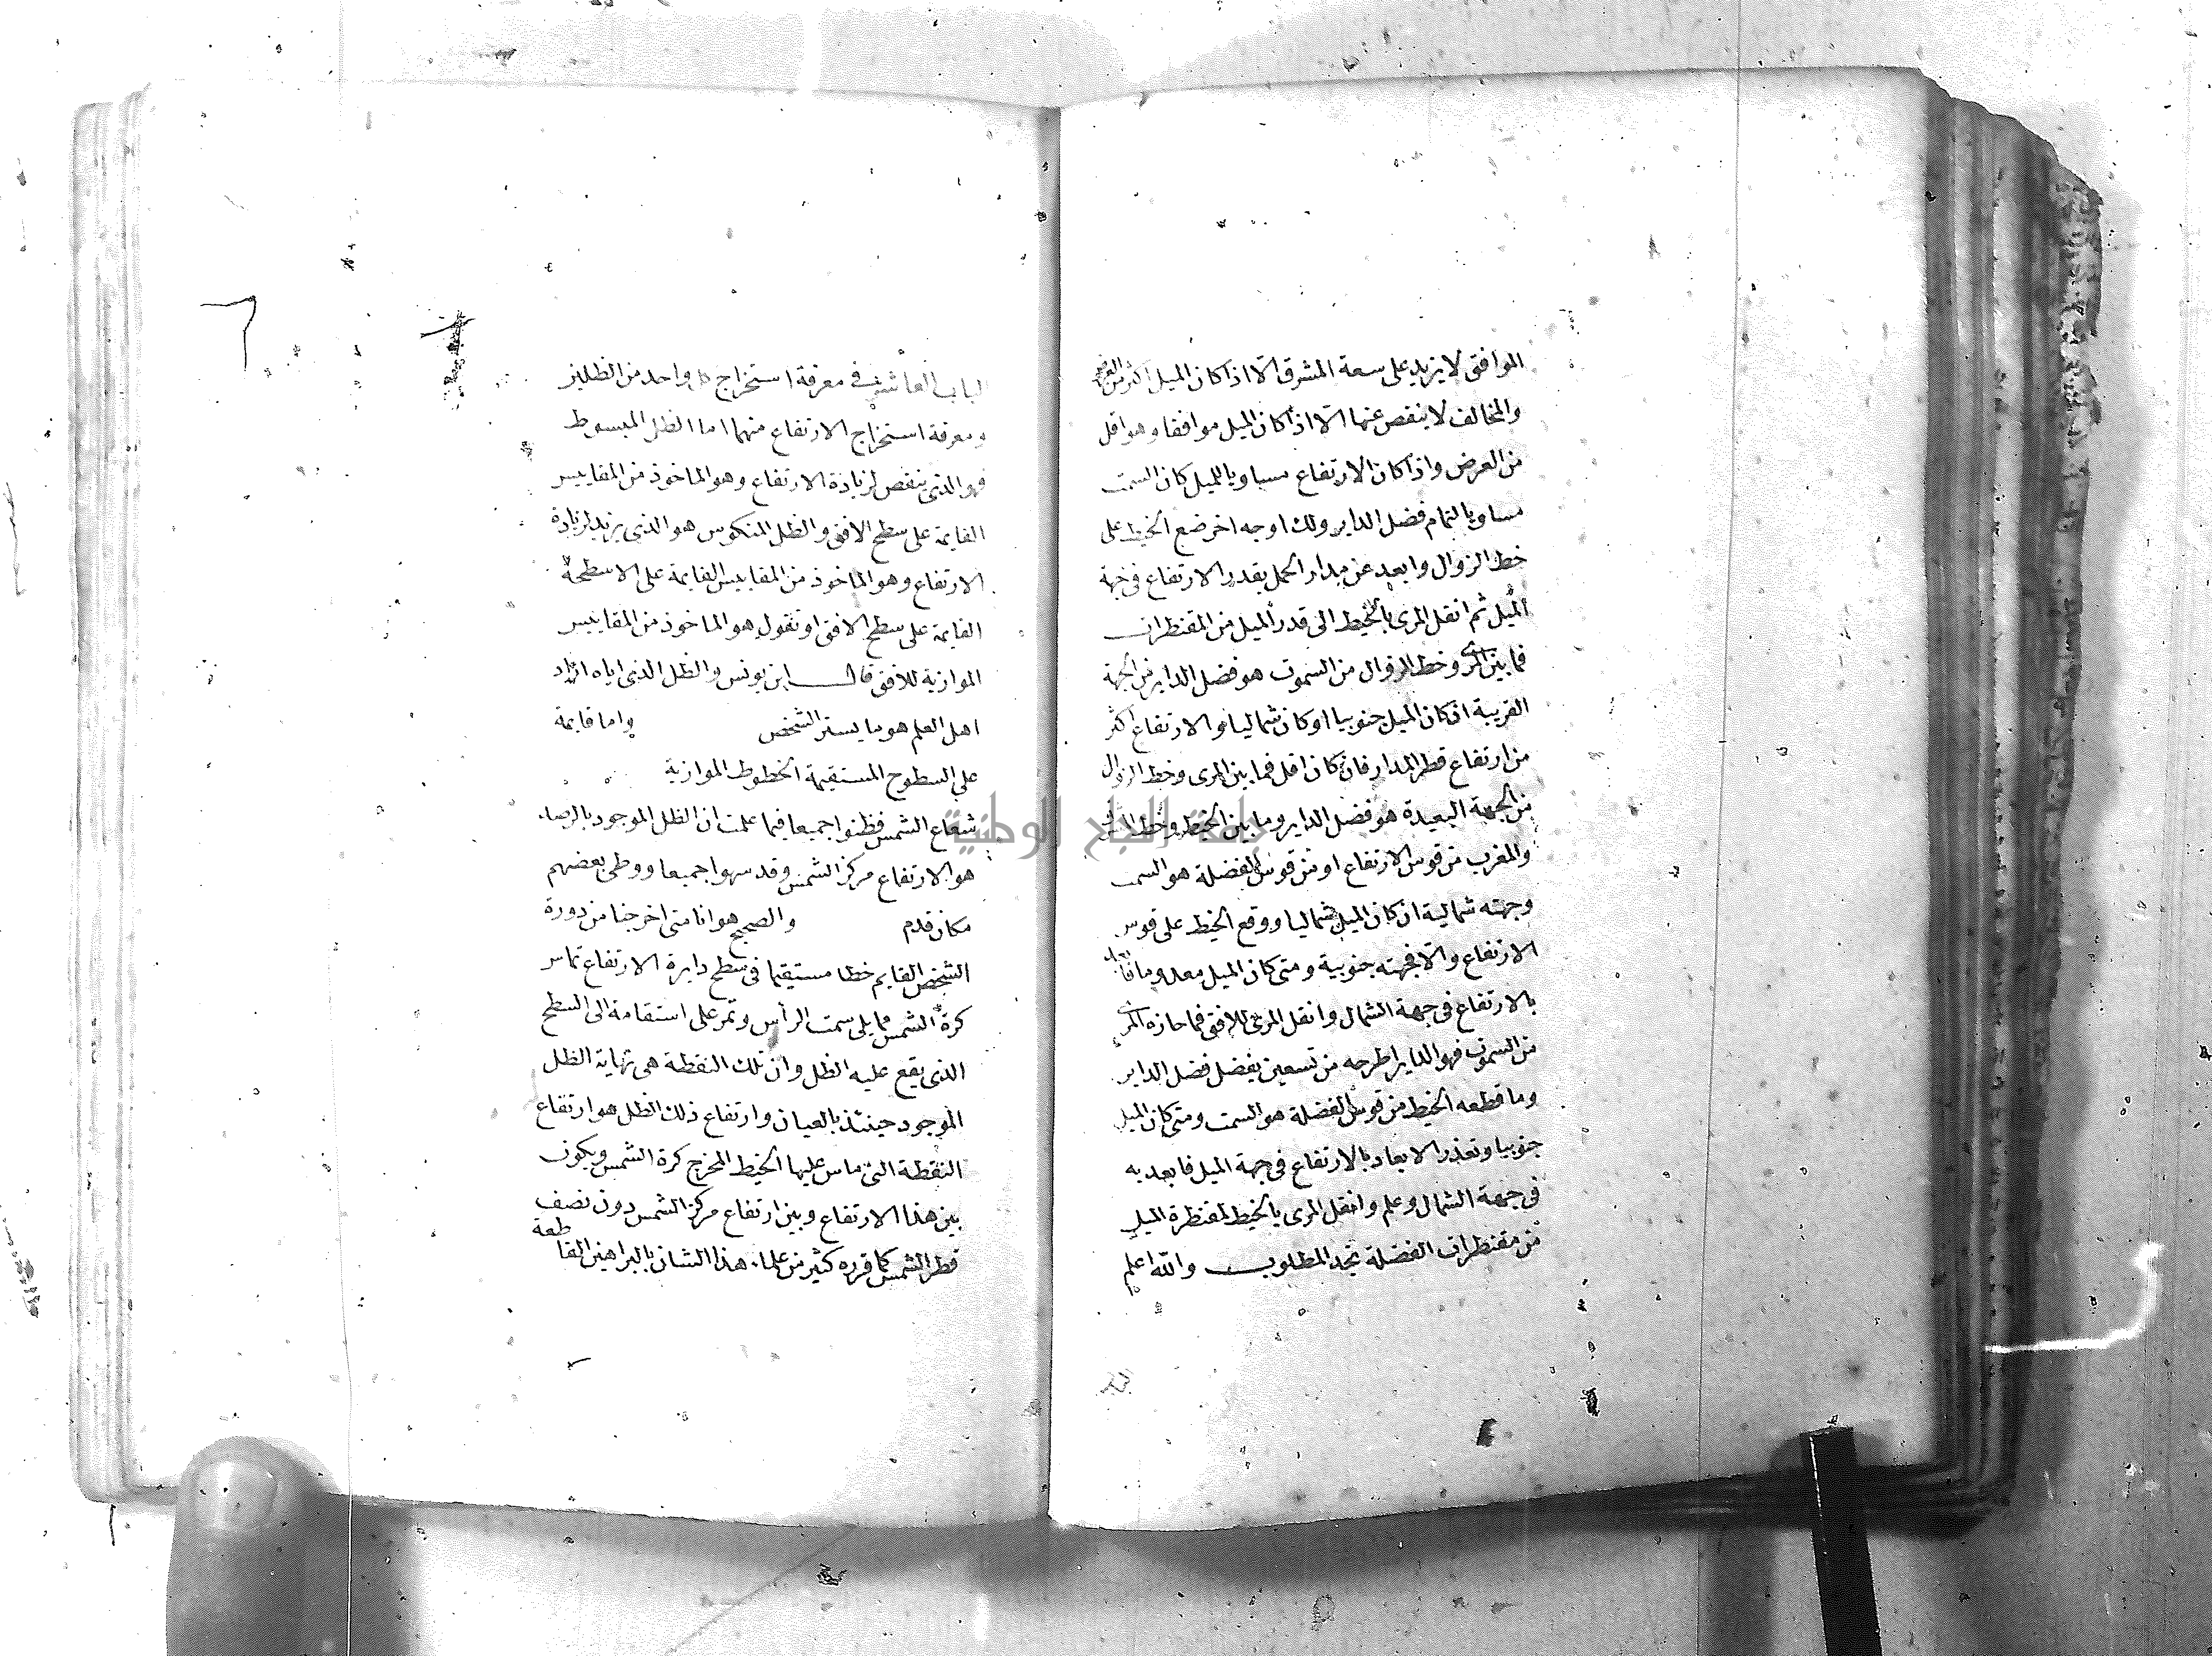 الموافق لا يزيد على سعة المشرق الا اذا كان الميل اكثر من العرض
والمخالف لا ينقص عنها الا اذا كان الميل موافقا وهو اقل
من العرض واذا كان الارتفاع مساويا للميل كان السمت
مساويا لتمام فضل الداير ولك اوجه اخر ضع الخيط على
خط الزوال وابعد عن مدار الحمل بقدر الارتفاع في جهة
الميل ثم انقل المرى بالخيط الى قدر الميل من المقنطرات
فما بين المرى وخط الزوال من السموت هو فضل الداير من الجهة
القريبة ان كان الميل جنوبيا او كان شماليا والارتفاع اكثر
من ارتفاع قطر المدار فان كان اقل فما بين المرى وخط الزوال
من الجهة البعيدة هو فضل الداير وما بين الخيط وخط المشرق
والمغرب من قوس الارتفاع او من قوس الفضلة هو السمت
وجهته شمالية ان كان الميل شماليا ووقع الخيط على قوس
الارتفاع والا فجهته جنوبية ومتى كان الميل معدوما فابعد
بالارتفاع في جهة الشمال وانقل المرى للافق فما حازه المرى
من السموت فهو الداير اطرحه من تسعين يفضل فضل الداير
وما قطعه الخيط من قوس الفضلة هو السمت ومتى كان الميل
جنوبيا وتعذر الابعاد بالارتفاع في جهة الميل فابعد به
في جهة الشمال وعلم وانقل المرى بالخيط لمقنطرة الميل
من مقنطرات الفضلة تجد المطلوب والله اعلم
الباب العاشر في معرفة استخراج كل واحد من الظلين
ومعرفة استخراج الارتفاع منهما اما الظل المبسوط
فهو الذي ينقص لزيادة الارتفاع وهو الماخوذ من المقاييس
القايمة على سطح الافق والظل المنكوس هو الذي يزيد لزيادة
الارتفاع وهو الماخوذ من المقاييس القايمة على الاسطحة
القايمة على سطح الافق او نقول هو الماخوذ من المقاييس
الموازية للافق قال ابن يونس والظل الذي اياه اراد
اهل العلم هو ما يستر الشخص واما قايمة
على السطوح المستقيمة الخطوط الموازية
شعاع الشمس فظنوا جميعا فيما علمت ان الظل الموجود بالرصد
هو الارتفاع مركز الشمس وقد سهوا جميعا ووطى بعضهم
مكان قدم والصحيح هو انا متى اخرجنا من دورة
الشخص القايم خطا مستقيما في سطح دايرة الارتفاع تماس
كرة الشمس مما يلى سمت الراس وتمر على استقامة الى السطح
الذي يقع عليه الظل وان تلك النقطة هي نهاية الظل
الموجود حينئذ بالعيان وارتفاع ذلك الظل هو ارتفاع
النقطة التي ماس عليها الخيط المخرج كرة الشمس ويكون
بين هذا الارتفاع وبين ارتفاع مركز الشمس دون نصف
قطر الشمس كما قرره كثير من علماء هذا الشان بالبراهين القاطعة
جامعة النجاح الوطنية